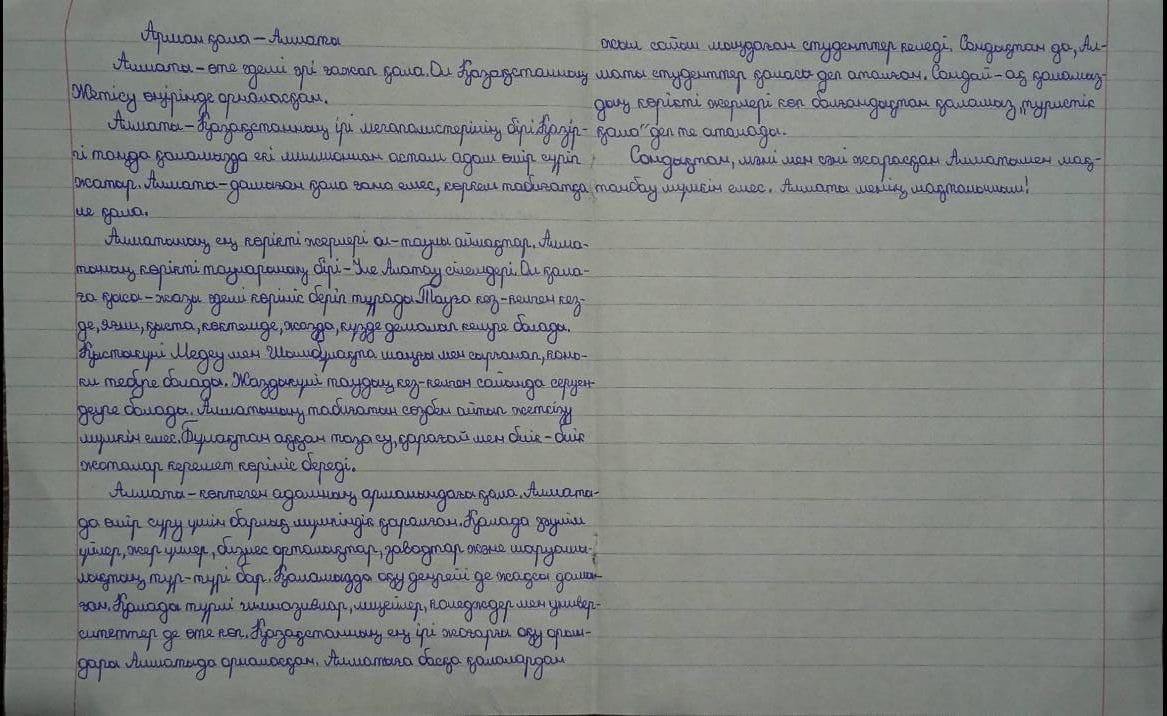 Арман қала – Алматы
Алматы – өте әдемі әрі ғажап қала. Ол Қазақстанның
Жетісу өңірінде орналасқан.
Алматы – Қазақстанның ірі мегаполистерінің бірі. Қазір-
гі таңда қаламызда екі миллионнан астам адам өмір сүріп
жатыр. Алматы – дамыған қала ғана емес, көркем табиғатқа
ие қала.
Алматының ең көрікті жерлері ол – таулы аймақтар. Алма-
тының көрікті тауларының бірі – Іле Алатау сілемдері. Ол қала-
ға қысы – жазы әдемі көрініс беріп тұрады. Тауға кез-келген кез-
де, яғни, қыста, көктемде, жазда, күзде демалып келуге болады.
Қыстыкүні Медеу мен Шымбұлақта шаңғы мен сырғанап, конь-
ки тебуге болады. Жаздыкүні таудың кез-келген сайында серуен-
деуге болады. Алматының табиғатын сөзбен айтып жеткізу
мүмкін емес. Бұлақтан аққан таза су, қарағай мен биік – биік
жоталар керемет көрініс береді.
Алматы – көптеген адамның арманындағы қала. Алматы-
да өмір сүру үшін барлық мүмкіндік қаралған. Қалада зәулім
үйлер, жер үйлер, бизнес орталықтар, заводтар және шаруашы-
лықтың түр-түрі бар. Қаламызда оқу деңгейі де жақсы дамы-
ған. Қалада түрлі гимназиялар, лицейлер, колледждер мен универ-
ситеттер де өте көп. Қазақстанның ең ірі жоғарғы оқу орын-
дары Алматыда орналасқан. Алматыға басқа қалалардан
жыл сайын мыңдаған студенттер келеді. Сондықтан да, Ал-
маты студенттер қаласы деп аталған. Сондай-ақ қаламыз-
дың көрікті жерлері көп болғандықтан қаламыз „туристік
қала" деп те аталады.
Сондықтан, мәні мен сәні жарасқан Алматымен мақ-
танбау мүмкін емес. Алматы менің мақтанышым!